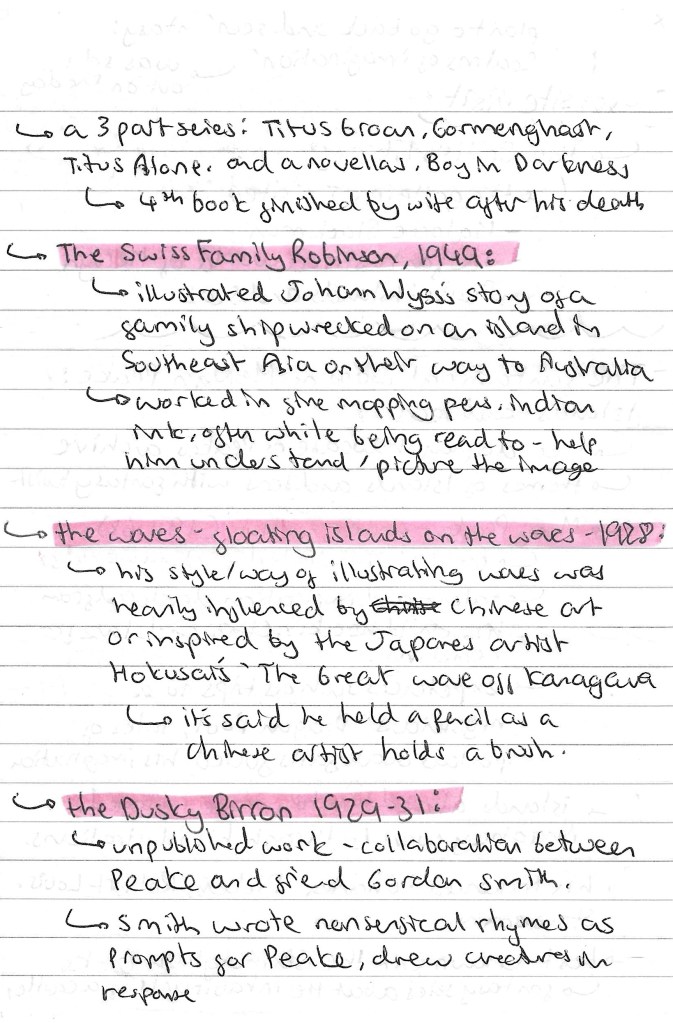 ↳ a 3 part series: Titus Groan, Gormenghast,
Titus Alone. and a novellas, Boy in Darkness
↳ 4th book finished by wife after his death
↳ The Swiss Family Robinson, 1949:
↳ illustrated Johann Wyss's story of a
family shipwrecked on an island in
Southeast Asia on their way to Australia
↳ worked in fine mapping pens, Indian
ink, often while being read to - help
him understand / picture the image
↳ the waves - floating islands on the waves - 1928:
↳ his style/way of illustrating waves was
heavily influenced by Chinese art
or inspired by the Japanes artist
Hokusai's 'The Great wave off Kanagawa
↳ it's said he held a pencil as a
chinese artist holds a brush.
↳ the Dusky Birron 1929-31:
↳ unpublished work - collaboration between
Peake and friend Gordon Smith.
↳ Smith wrote nonsensical rhymes as
prompts for Peake, drew creatures in
response